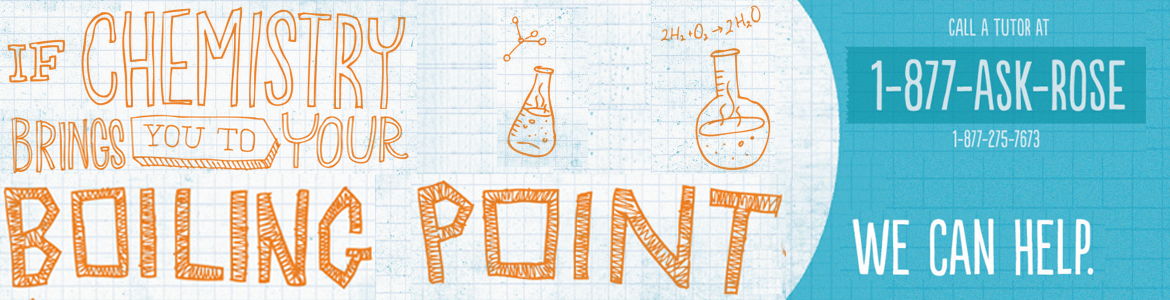 IF CHEMISTRY
BRINGS YOU TO YOUR
BOILING POINT
2H₂+O₂→2H₂O
CALL A TUTOR AT
1-877-ASK-ROSE
1-877-275-7673
WE CAN HELP.